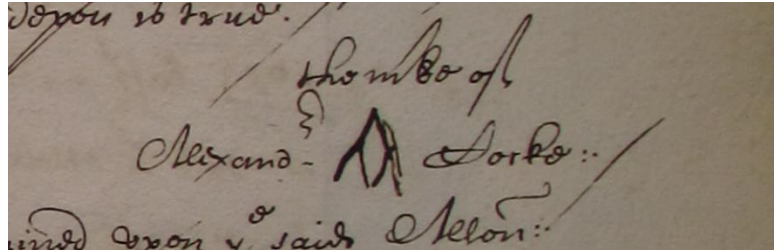 depon is true.
the mke of
Alexand Locke
ined vpon ye said Allon: